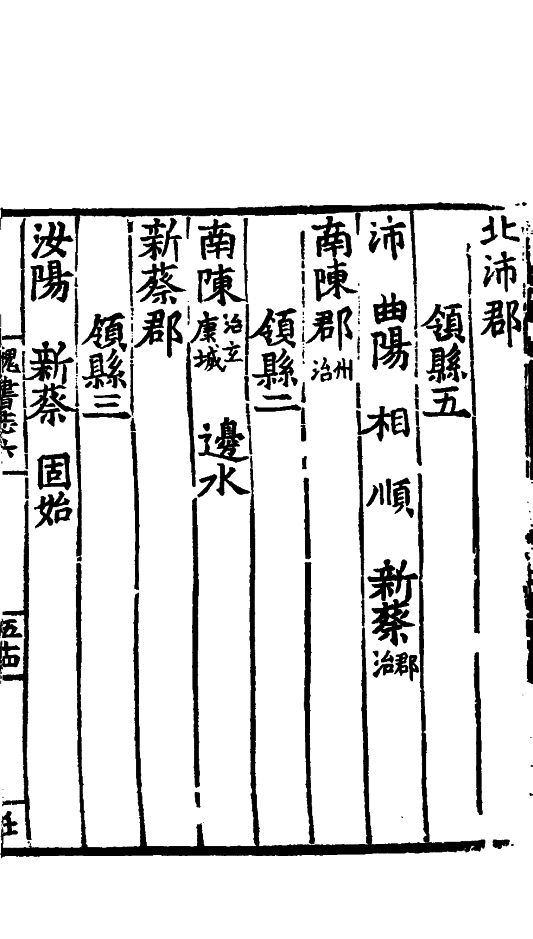 北沛郡
領縣五
沛 曲陽 相 順 新蔡 郡治
南陳郡 州治
領縣二
南陳 治立城 邊水
新蔡郡
領縣三
汝陽 新蔡 固始
魏書志六
任